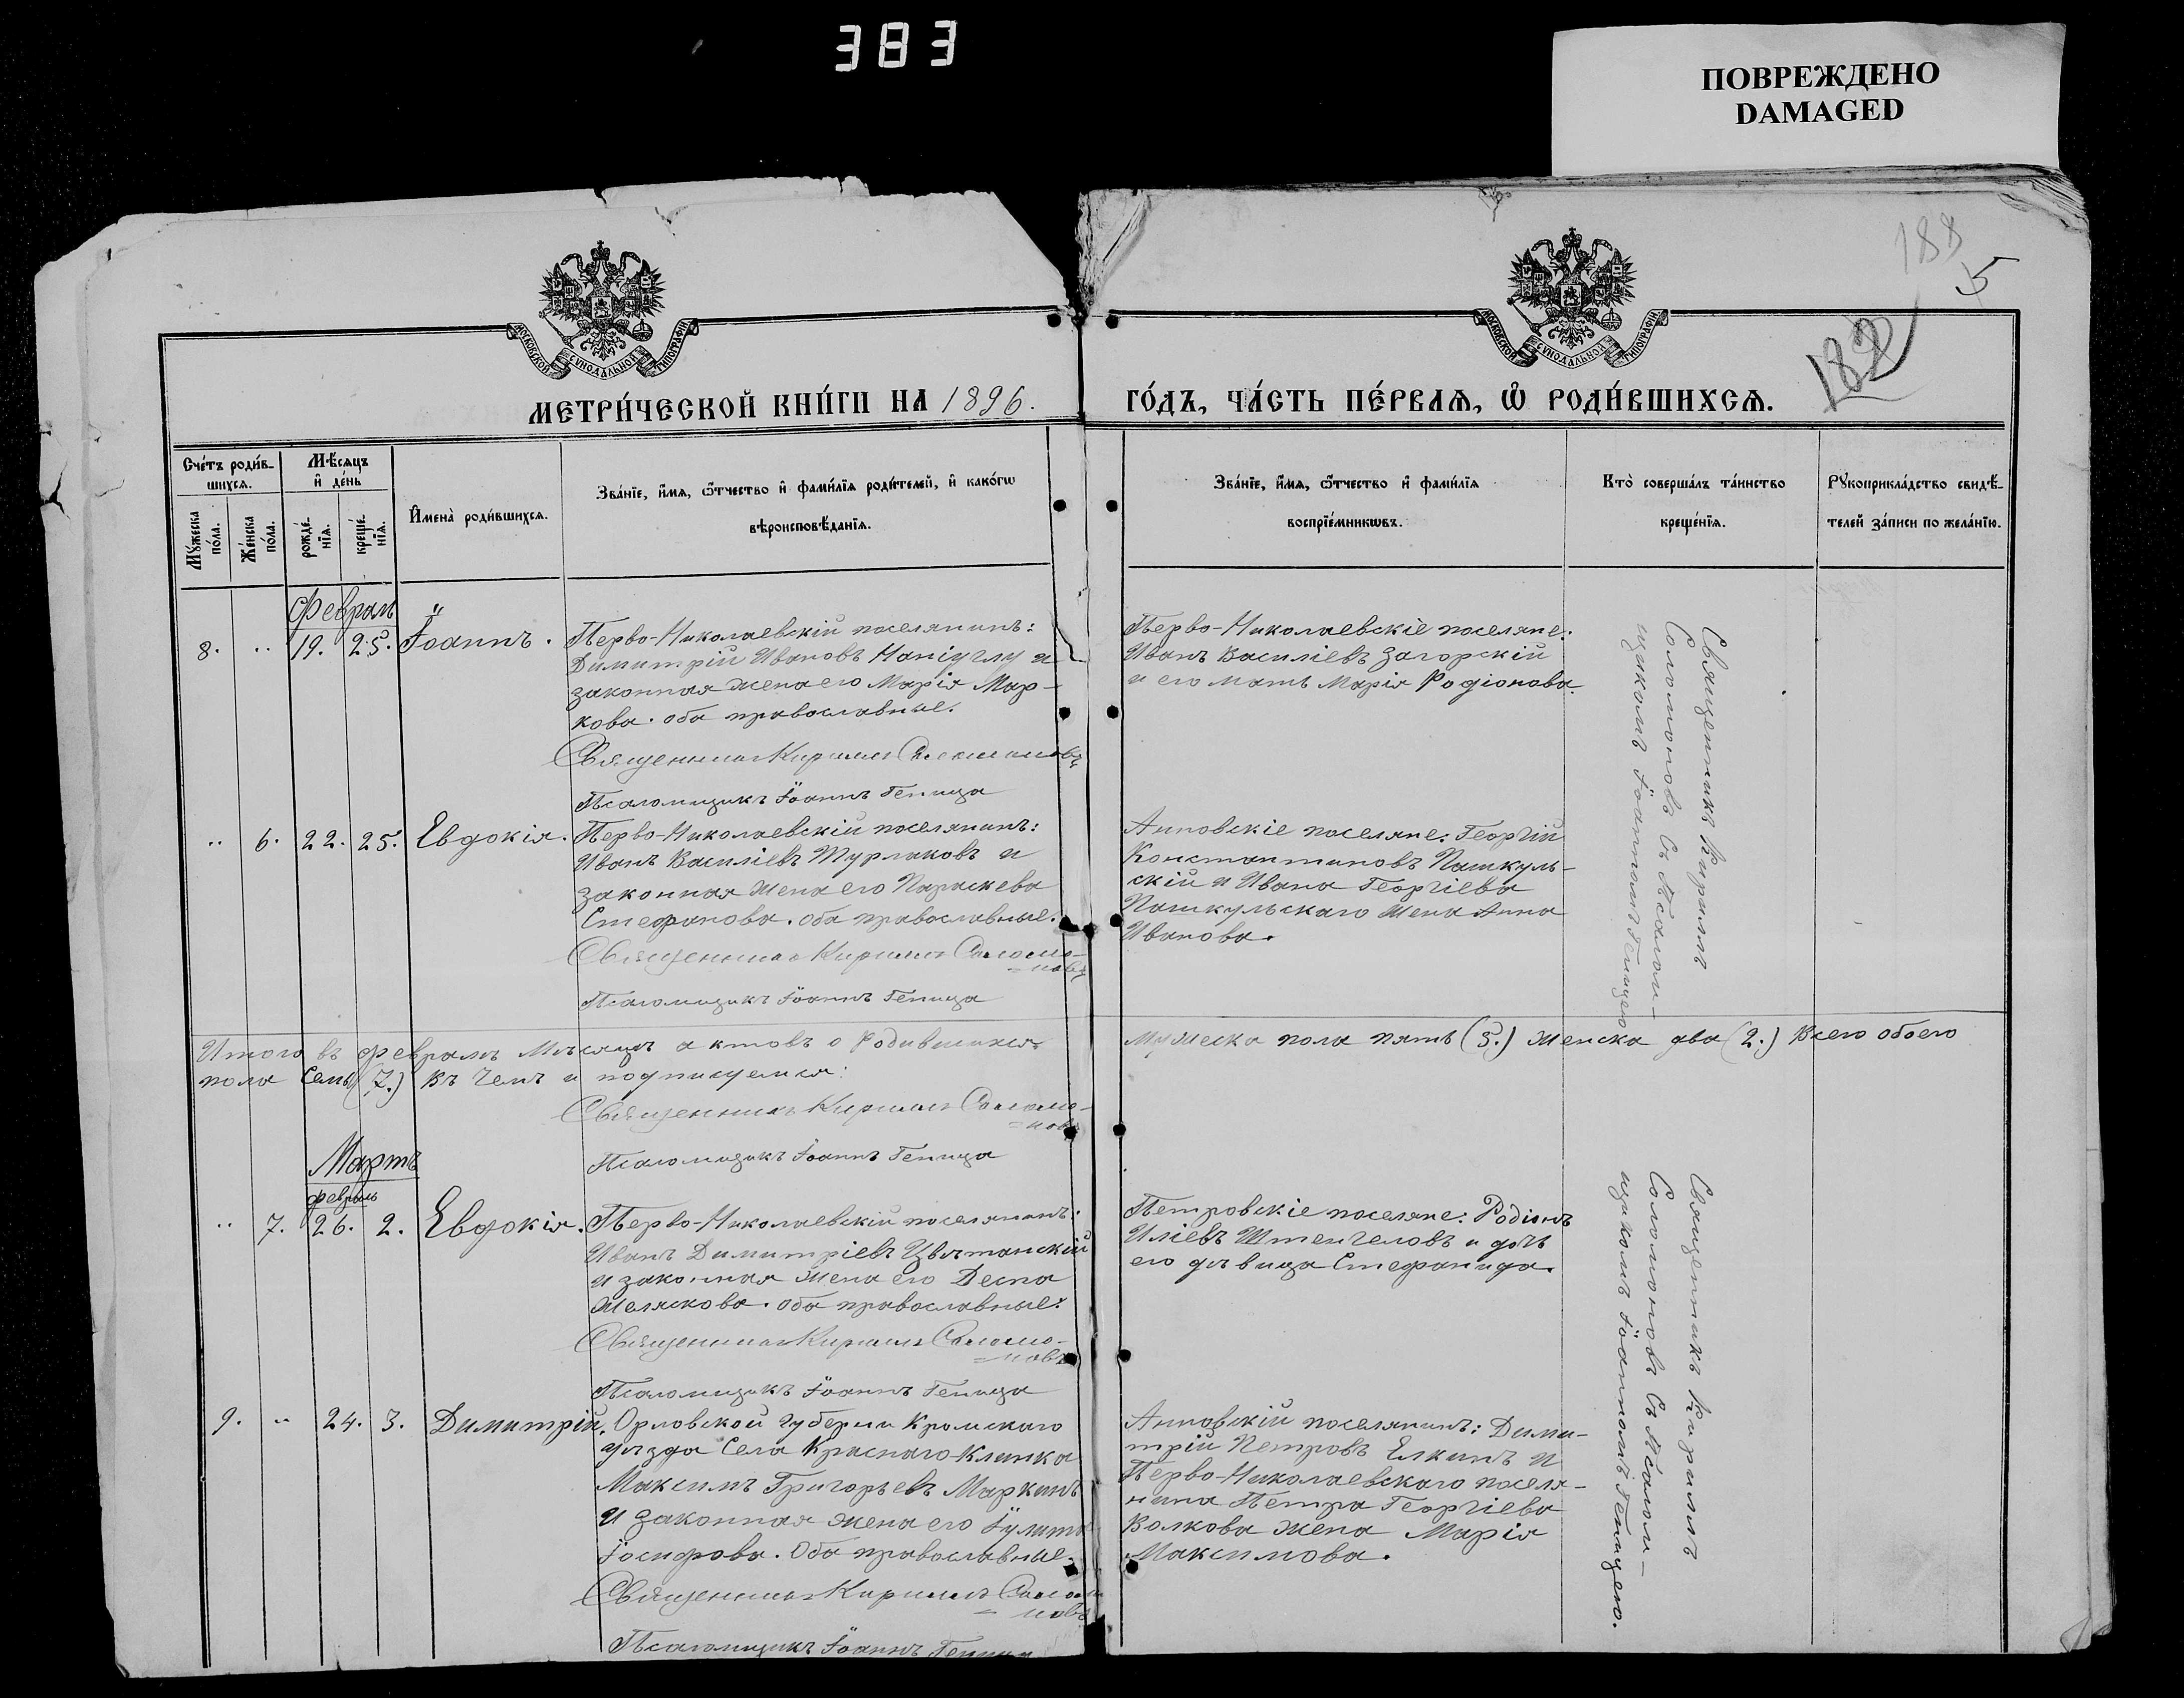 383
ПОВРЕЖДЕНО
DAMAGED
188
5
182
МОСКОВСКОЙ СУНОДАЛЬНОЙ ТИПОГРАФІИ
МОСКОВСКОЙ СУНОДАЛЬНОЙ ТИПОГРАФІИ
МЕТРИ́ЧЕСКОЙ КНИ́ГИ НА 1896. ГО́ДЪ, ЧА́СТЬ ПЕ́РВАѦ, Ѽ РОДИ́ВШИХСѦ.
Сче́тъ роди́в-
шихсѧ.
Мѣ́сяцъ
и҆ де́нь
Мꙋ́жеска
по́ла.
Же́нска
по́ла.
рожде́-
нїѧ.
креще́-
нїѧ.
И҆мена̀ роди́вшихсѧ.
Зва́нїе, и҆́мѧ, ѻ҆́тчество и҆ фами́лїѧ роди́телей, и҆ како́гѡ
вѣроисповѣ́данїѧ.
Зва́нїе, и҆́мѧ, ѻ҆́тчество и҆ фами́лїѧ
воспрїе́мникѡвъ.
Кто̀ соверша́лъ та́инство
креще́нїѧ.
Рꙋкоприкла́дство свидѣ́-
телей за́писи по жела́нїю.
Февраль
8. " 19. 25. Іоаннъ.
Перво-Николаевскій поселянинъ:
Димитрій Ивановъ и
законная жена его Марія Мар-
кова. оба православные.
Священникъ Кириллъ Соломоновъ
Псаломщикъ Іоаннъ Геница
Перво-Николаевскіе поселяне:
Иванъ Василіевъ Загорскій
и его мать Марія Родіонова
Священникъ Кириллъ
Соломоновъ съ Псалом-
щикомъ Іоанномъ Геницею
" 6. 22. 25. Евдокія.
Перво-Николаевскій поселянинъ:
Иванъ Василіевъ Турлаковъ и
законная жена его Параскева
Стефанова. оба православные.
Священникъ Кириллъ Соломо-
=новъ
Псаломщикъ Іоаннъ Геница
Анновскіе поселяне: Георгій
Константиновъ Пашкуль-
скій и Ивана Георгіева
Пашкульскаго жена Анна
Иванова.
Итого въ февралѣ мѣсяцѣ актовъ о Родившихся мужеска пола пять (5.) женска два (2.) Всего обоего
пола семь (7.) Въ чемъ и подписуемся:
Священникъ Кириллъ Соломо-
=новъ
Псаломщикъ Іоаннъ Геница
Мартъ
февраль
" 7. 26. 2. Евдокія.
Перво-Николаевскій поселянинъ:
Иванъ Димитріевъ Цвятанскій
и законная жена его Деспа
Желяскова. оба православные:
Священникъ Кириллъ Соломо-
=новъ
Псаломщикъ Іоаннъ Геница
Петровскіе поселяне: Родіонъ
Иліевъ Штенгеловъ и дочь
его дѣвица Стефанида.
Священникъ Кириллъ
Соломоновъ съ Псалом-
щикомъ Іоанномъ Геницею.
9. " 24. 3. Димитрій.
Орловской губерніи Кромскаго
уѣзда Села Краснаго-Клинка
Максимъ Григорьевъ Маркинъ
и законная жена его Іулита
Іосифова. Оба православные.
Священникъ Кириллъ Соломо
=новъ
Псаломщикъ Іоаннъ Геница
Анновскій поселянинъ: Дими-
трій Петровъ Елкинъ и
Перво-Николаевскаго поселя-
нина Петра Георгіева
Волкова жена Марія
Максимова.